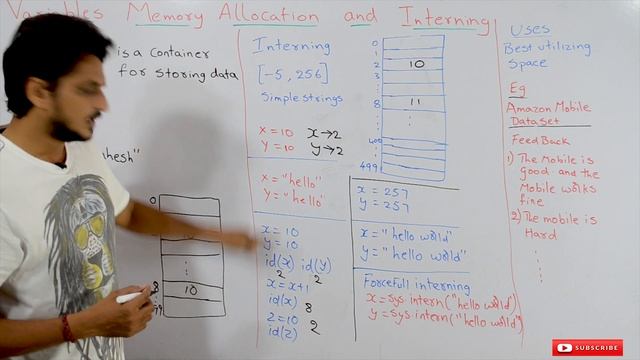 Variables Memory Allocation and Interning
is a Container
for storing data
hesh"
0
8
10
99
Interning
[-5, 256]
Simple strings
x = 10 x→2
y = 10 y→2
x = "hello"
y = "hello"
x = 10
y = 10
id(x) id(y)
2 2
x = x+1
id(x) 8
z = 10 2
id(z)
0
1
2 10
3
8 11
400
499
x = 257
y = 257
x = "hello world"
y = "hello world"
Forcefull interning
x = sys.intern("hello world")
y = sys.intern("hello world")
Uses
Best utilizing
Space
Eg
Amazon Mobile
Dataset
FeedBack
1) The Mobile is
good and the
Mobile works
fine
2) The mobile is
Hard
SUBSCRIBE